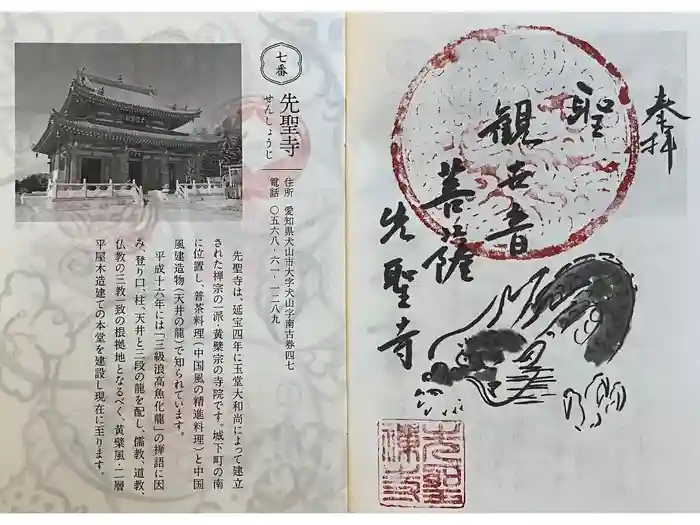 奉拝
聖
観世音
菩薩
先聖寺
先聖
禅寺
七番
先聖寺
せんしょうじ
住所 愛知県犬山市大字犬山字南古券四七
電話 〇五六八-六一-一二八九
先聖寺は、延宝四年に玉堂大和尚によって建立
された禅宗の一派・黄檗宗の寺院です。城下町の南
に位置し、普茶料理(中国風の精進料理)と中国
風建造物(天井の龍)で知られています。
平成十六年には「三級浪高魚化龍」の禅語に因
み、登り口、柱、天井と三段の龍を配し、儒教、道教、
仏教の三教一致の根拠地となるべく、黄檗風・二層
平屋木造建ての本堂を建設し現在に至ります。